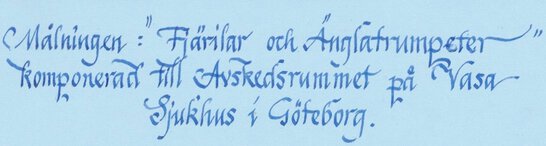 Målningen :" Fjärilar och Änglatrumpeter"
komponerad till Avskedsrummet på Vasa
Sjukhus i Göteborg.